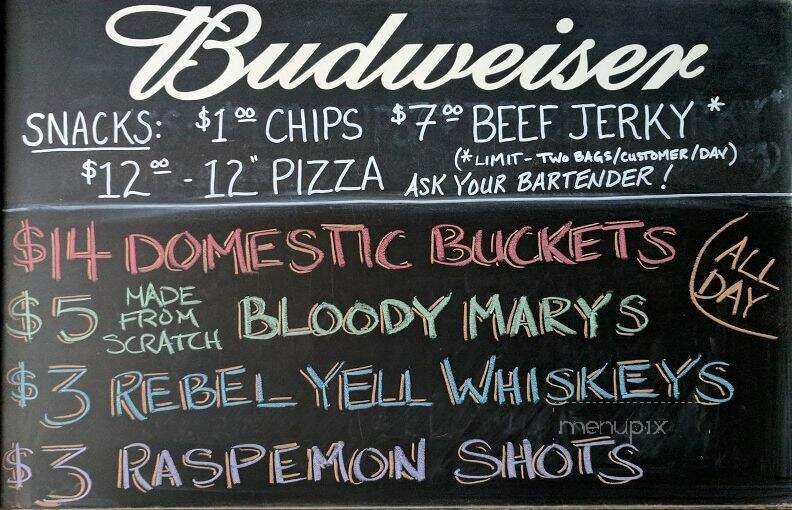 Budweiser
SNACKS: $1.00 CHIPS $7.00 BEEF JERKY *
(*LIMIT - TWO BAGS/CUSTOMER/DAY)
$12.00 - 12" PIZZA ASK YOUR BARTENDER!
$14 DOMESTIC BUCKETS
ALL DAY
$5 MADE FROM SCRATCH BLOODY MARYS
$3 REBEL YELL WHISKEYS
menupix
$3 RASPEMON SHOTS